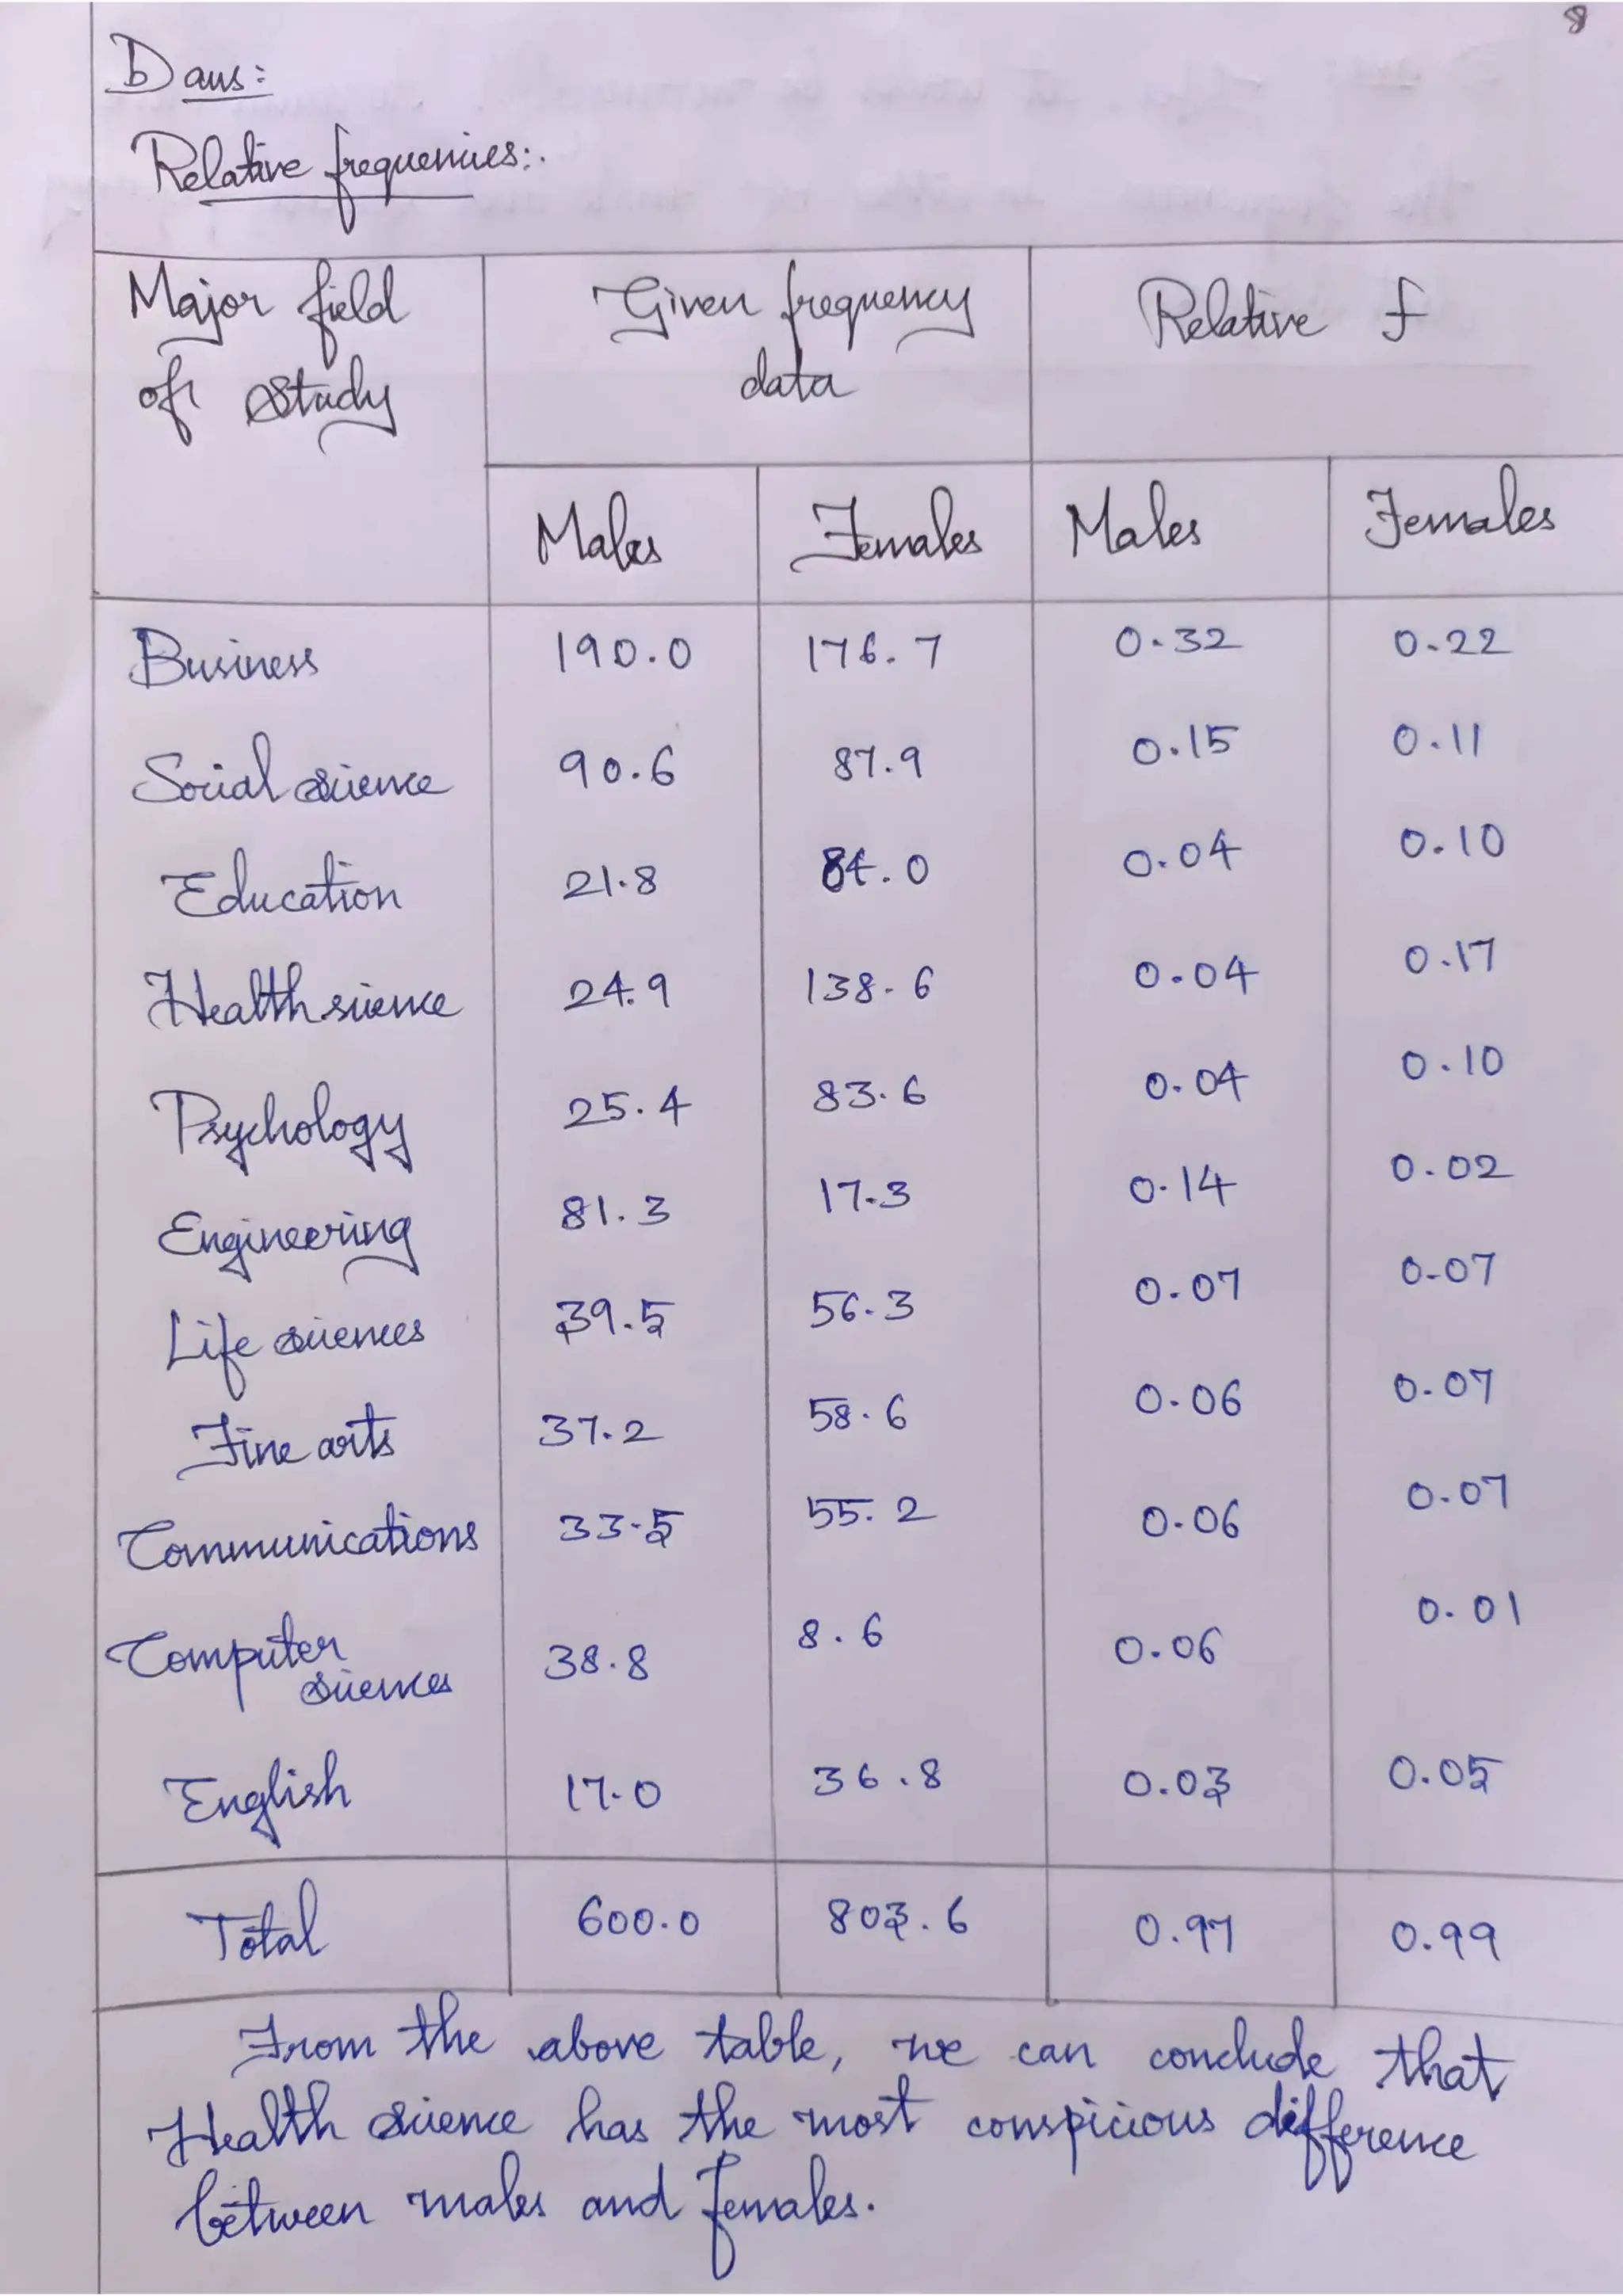 8
b) ans:
Relative frequencies:.
Major field of study | Given frequency data | Relative f
Males | Females | Males | Females
Business 190.0 176.7 0.32 0.22
Social science 90.6 87.9 0.15 0.11
Education 21.8 84.0 0.04 0.10
Health science 24.9 138.6 0.04 0.17
Psychology 25.4 83.6 0.04 0.10
Engineering 81.3 17.3 0.14 0.02
Life sciences 39.5 56.3 0.07 0.07
Fine arts 37.2 58.6 0.06 0.07
Communications 33.5 55.2 0.06 0.07
Computer sciences 38.8 8.6 0.06 0.01
English 17.0 36.8 0.03 0.05
Total 600.0 803.6 0.97 0.99
From the above table, we can conclude that
Health science has the most conspicious difference
between males and females.